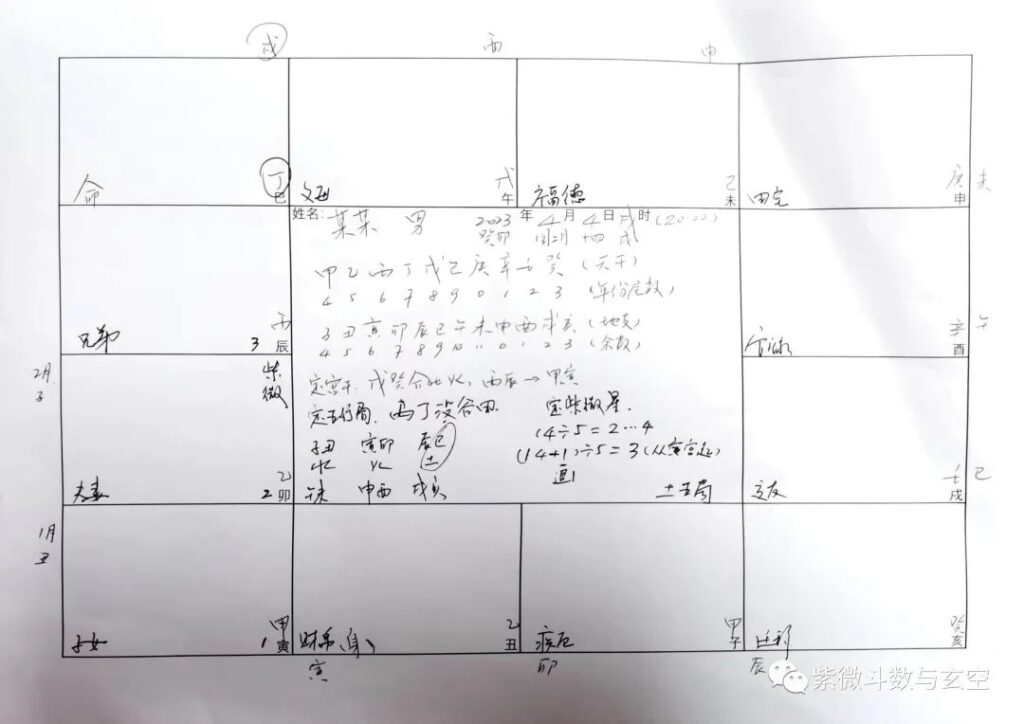 戌 酉 申
丁 戊 己 庚 未
命 巳 父母 午 福德 未 田宅 申
姓名: 某某 男 2023 年 4 月 4 日 戌 时 (20:00)
癸卯 闰二月 十四 戌
甲 乙 丙 丁 戊 己 庚 辛 壬 癸 (天干)
4 5 6 7 8 9 0 1 2 3 (年份尾数)
丙 辛 午
子 丑 寅 卯 辰 巳 午 未 申 酉 戌 亥 (地支)
兄弟 3 辰 官禄 酉
4 5 6 7 8 9 10 11 0 1 2 3 (余数)
2月 子
紫微
定宫干. 戊癸合化火, 丙辰→甲寅
定五行局. 定紫微星.
14÷5=2…4
子丑 寅卯 辰巳
(14+1)÷5=3 (从寅宫起)
水 火 土
乙 壬 巳
夫妻 2 卯 午未 申酉 戌亥 土五局 交友 戌
1月 丑
甲 乙 甲 癸
子女 1 寅 财帛 (身) 丑 疾厄 子 迁移 亥
寅 卯 辰
紫微斗数与玄空